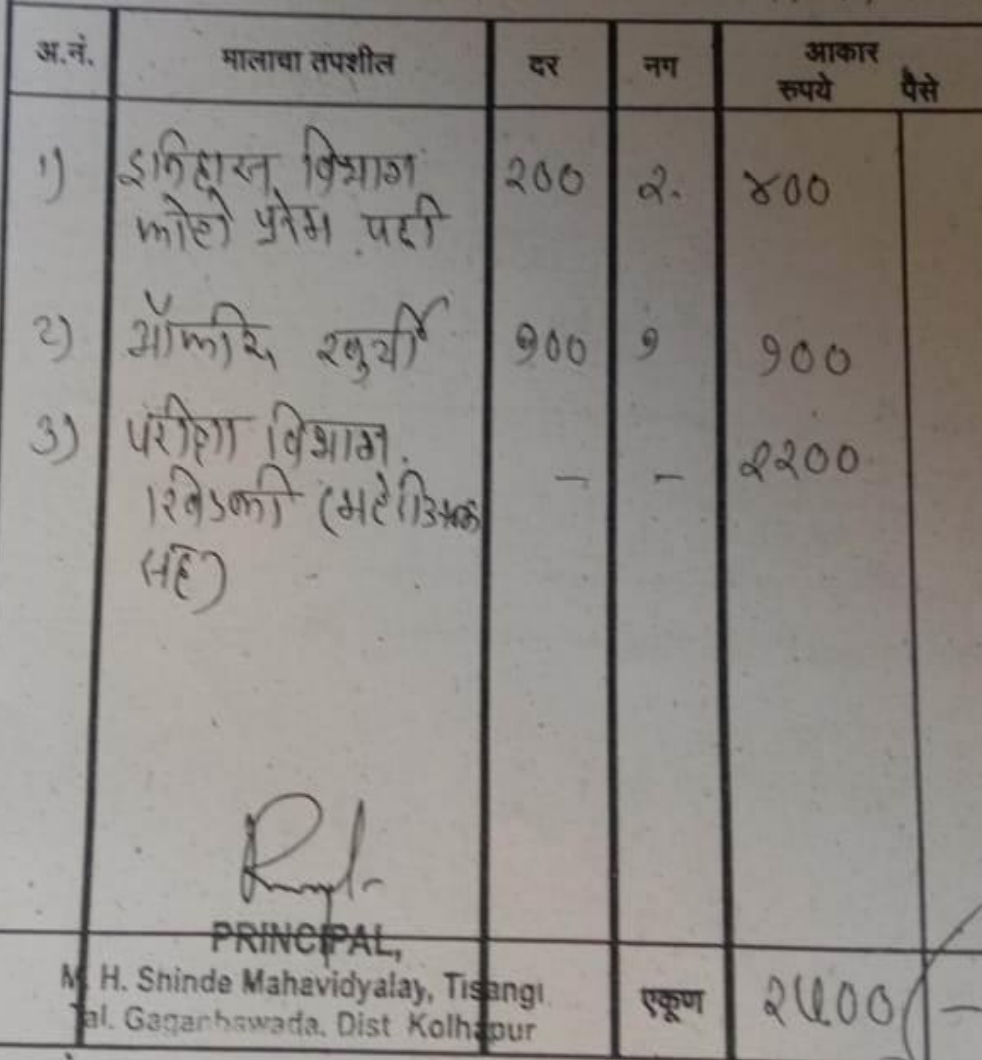 अ.नं. मालाचा तपशील दर नग आकार
रुपये पैसे
१) इतिहास विभाग २०० २. ४००
फोटो फ्रेम पट्टी
२) ऑफीस खुर्ची १०० १ १००
३) परीक्षा विभाग. - - २२००
खिडकी (मटेरिअल
सह)
PRINCIPAL,
M. H. Shinde Mahavidyalay, Tisangi
Tal. Gaganbawada. Dist Kolhapur
एकूण २५००/-